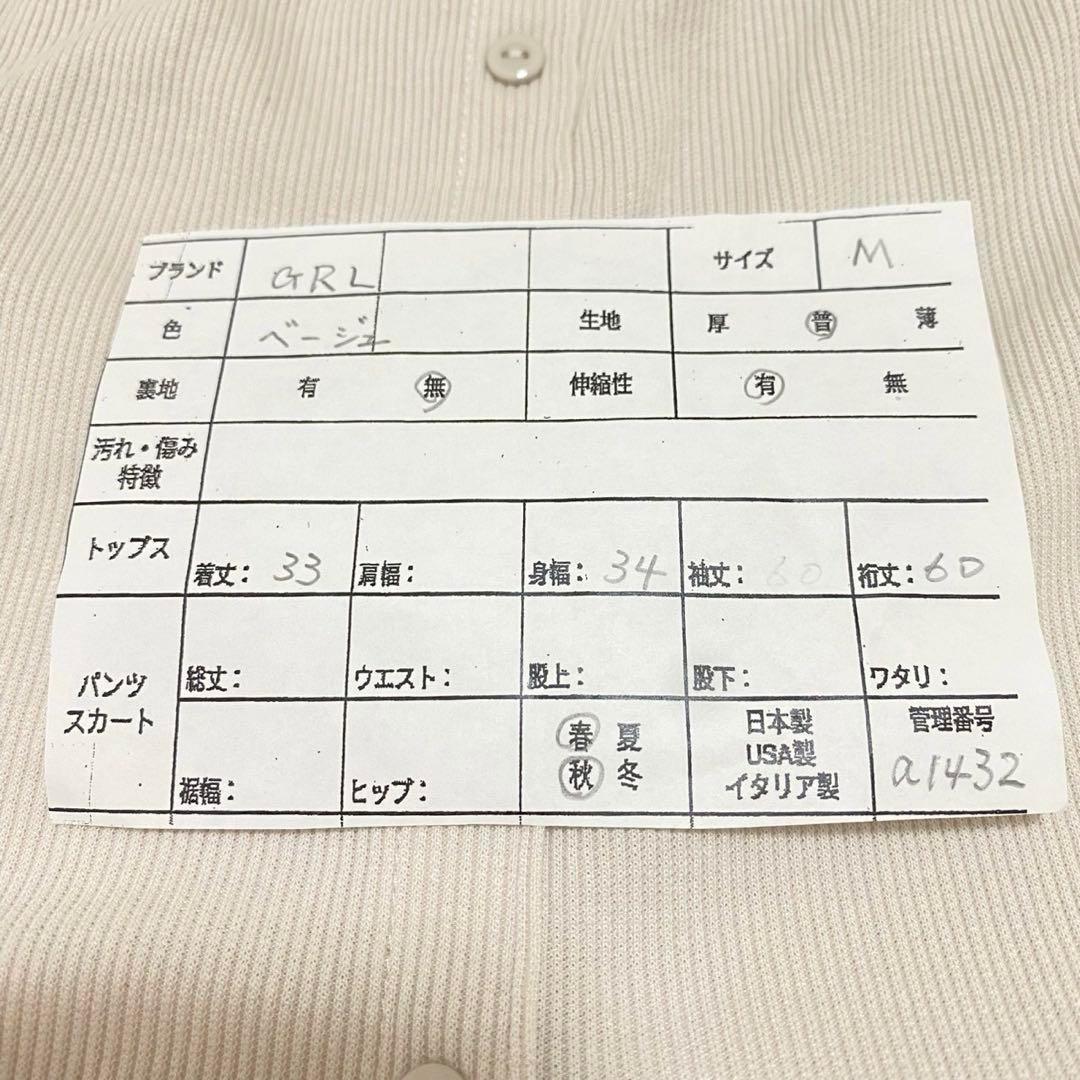 ブランド GRL サイズ M
色 ベージュ 生地 厚 普 薄
裏地 有 無 伸縮性 有 無
汚れ・傷み
特徴
トップス 着丈: 33 肩幅: 身幅: 34 袖丈: 60 裄丈: 60
パンツ
スカート
総丈: ウエスト: 股上: 股下: ワタリ:
裾幅: ヒップ:
春 夏
秋 冬
日本製
USA製
イタリア製
管理番号
a1432